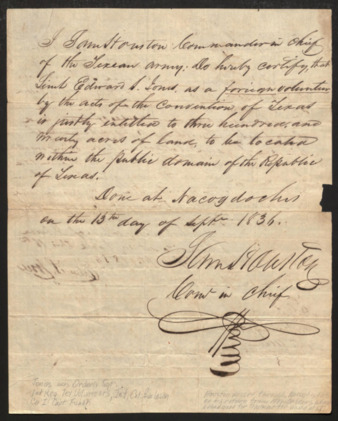 I Sam Houston Commander in Chief
of the Texian Army. Do hereby certify, that
Lieut Edward S. Jones, as a foreign volunteer
by the acts of the Convention of Texas
is justly intitled to three hundred, and
twenty acres of land, to be located
within the public domain of the Republic
of Texas.
Done at Nacogdoches
on the 13th day of Septr 1836.
Sam Houston
Com in Chief